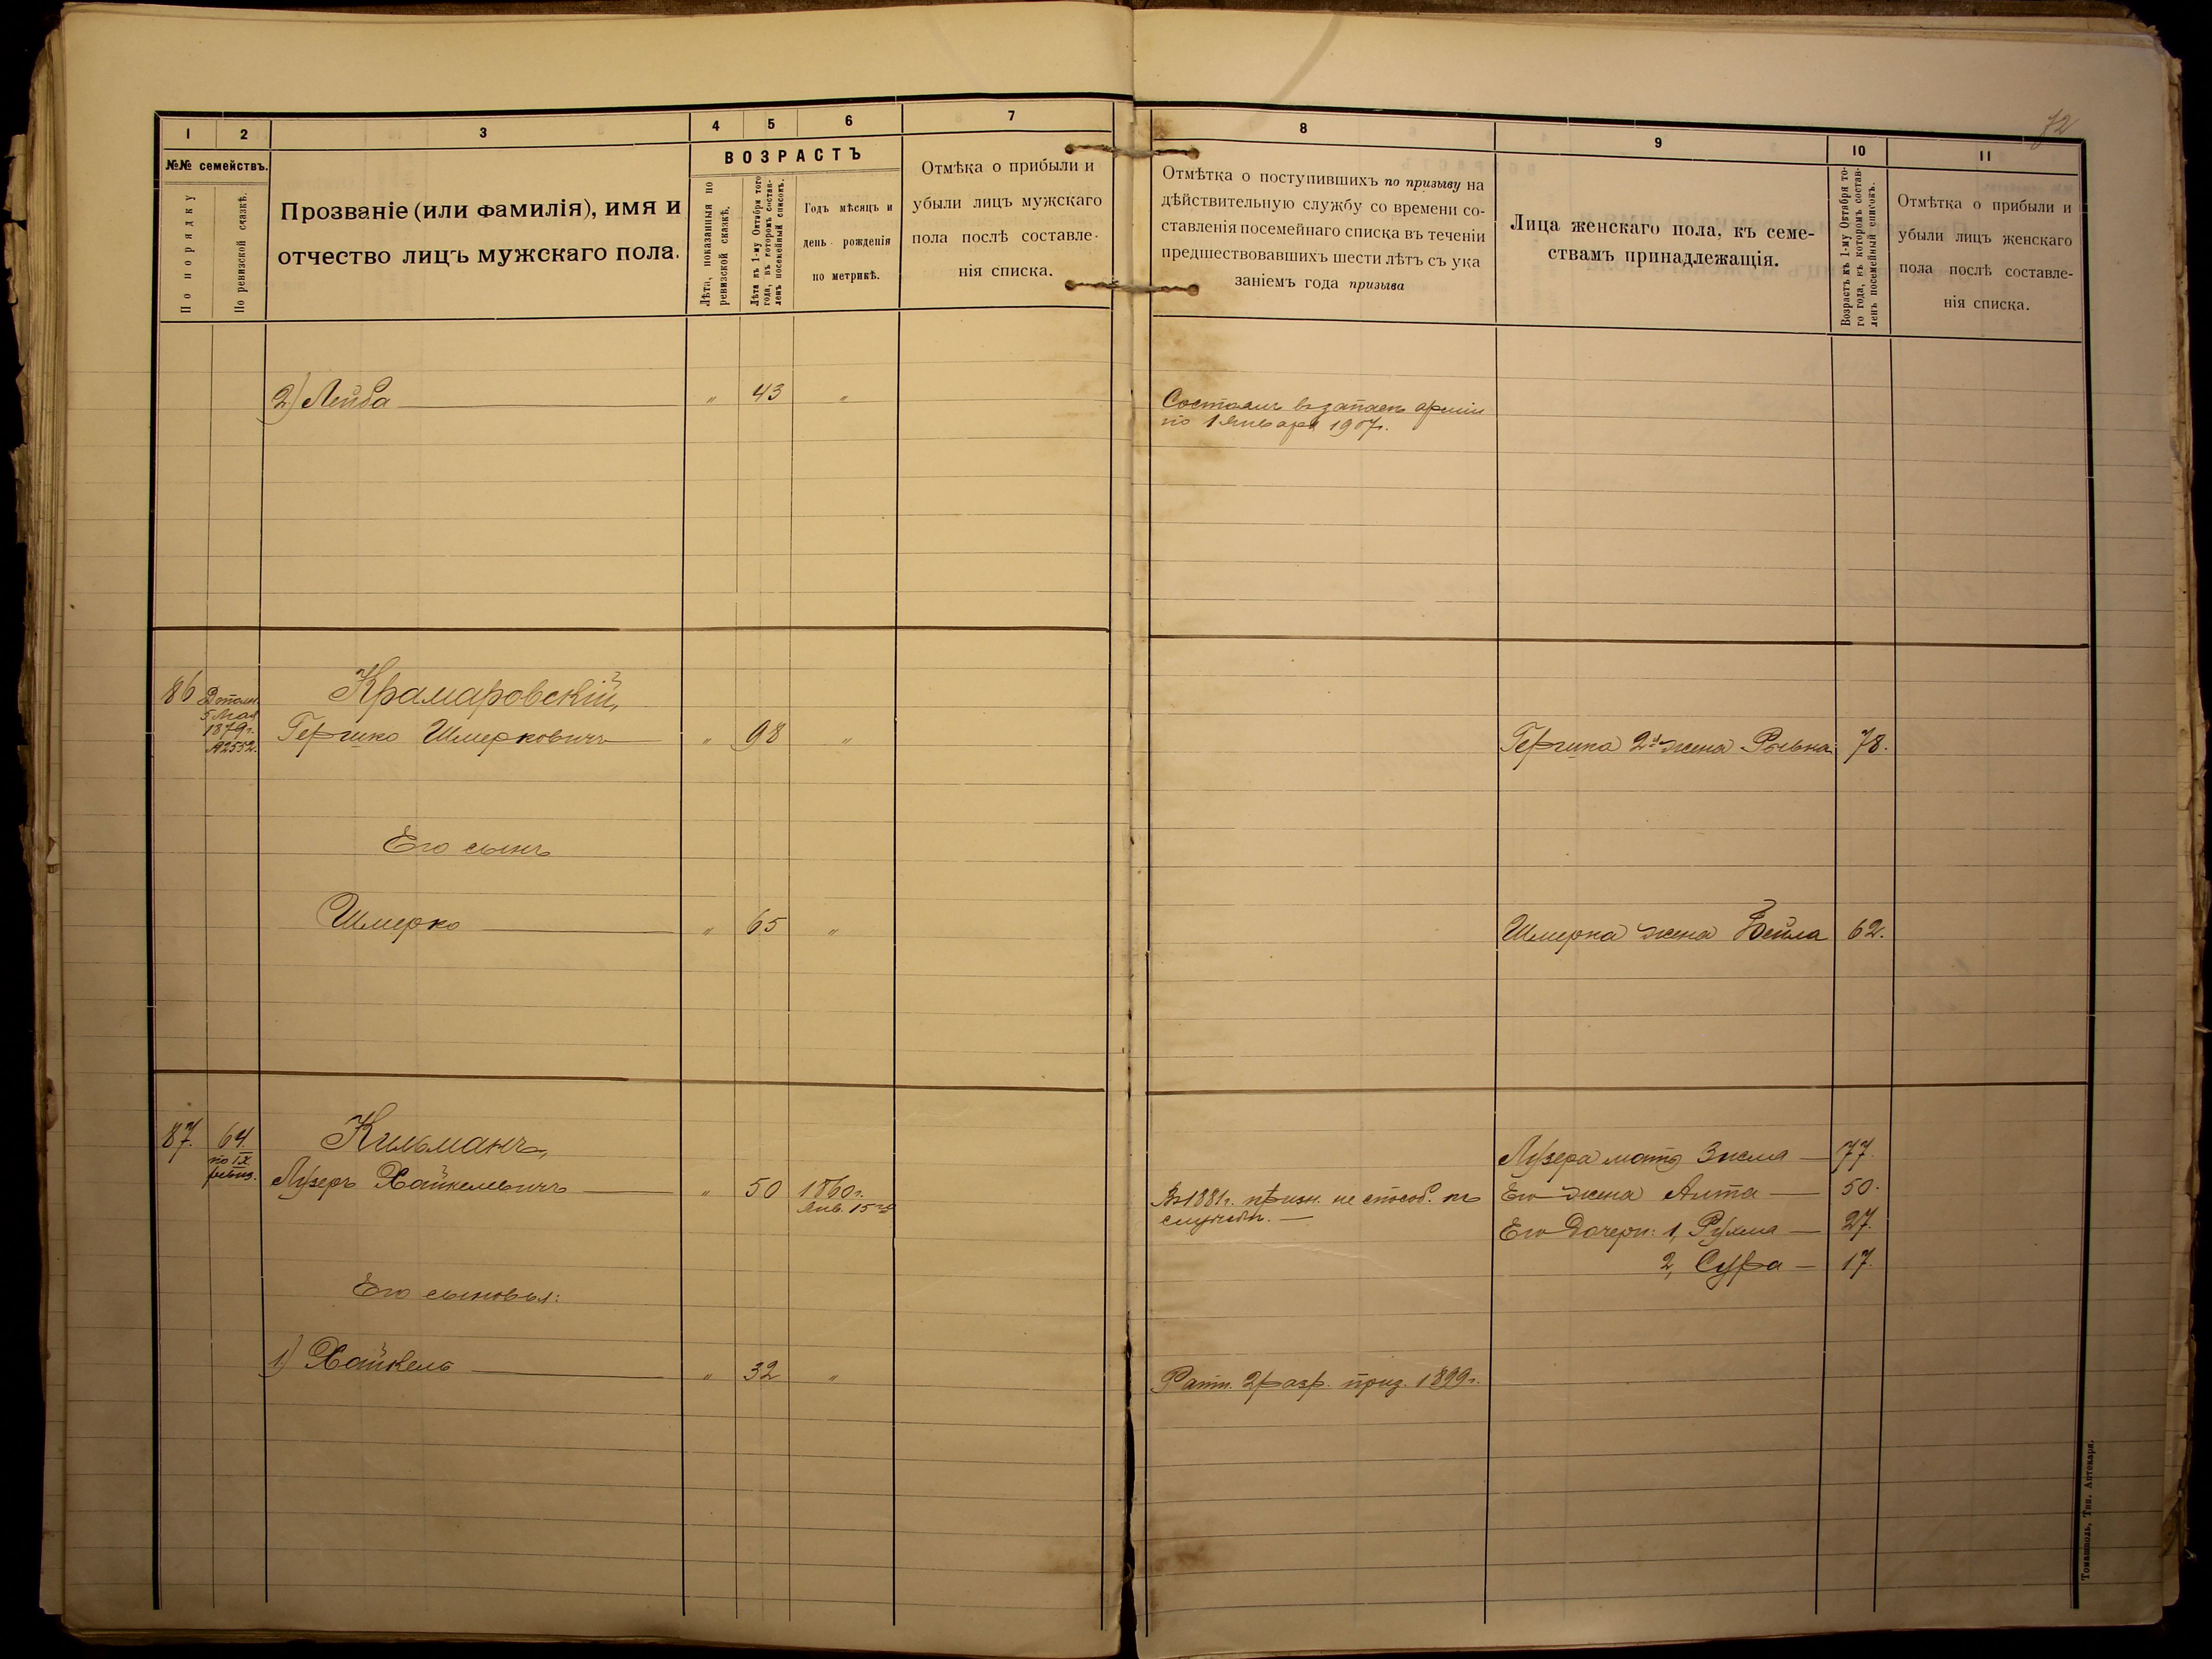 72
1 2 3 4 5 6 7
№№ семействъ.
По порядку
По ревизской сказкѣ.
Прозваніе (или фамилія), имя и
отчество лицъ мужскаго пола.
ВОЗРАСТЪ
Лѣта, показанныя по
ревизской сказкѣ.
Лѣта къ 1-му Октября того
года, въ которомъ состав-
ленъ посемейный списокъ.
Годъ мѣсяцъ и
день рожденія
по метрикѣ.
Отмѣка о прибыли и
убыли лицъ мужскаго
пола послѣ составле-
нія списка.
2) Лейба — " 43 "
86 5 Мая 1879г. №2552.
Крамаровскій,
Гершко Шмерковичъ — " 98 "
Его сынъ
Шмерко — " 65 "
87. 64. по IX ревиз.
Кильманъ,
Лузеръ Хайкелевичъ — " 50 1860г.
Янв. 15го
Его сыновья:
1) Хайкель — " 32 "
8 9 10 11
Отмѣтка о поступившихъ по призыву на
дѣйствительную службу со времени со-
ставленія посемейнаго списка въ теченіи
предшествовавшихъ шести лѣтъ съ ука
заніемъ года призыва
Лица женскаго пола, къ семе-
ствамъ принадлежащія.
Возрастъ къ 1-му Октября то-
го года, въ которомъ состав-
ленъ посемейный списокъ.
Отмѣтка о прибыли и
убыли лицъ женскаго
пола послѣ составле-
нія списка.
Состоялъ въ запасѣ арміи
по 1 Января 1907г.
Гершка 2я жена Рывка 78.
Шмерка жена Бейла 62.
Лузера мать Зисла — 77.
Въ 1881г. призн. не способ. къ Его жена Алта — 50.
службѣ. — Его дочери: 1, Рухма — 27.
2, Сура — 17.
Ратн. 2 разр. приз. 1899г.
Томашполь, Тип. Аптекаря.